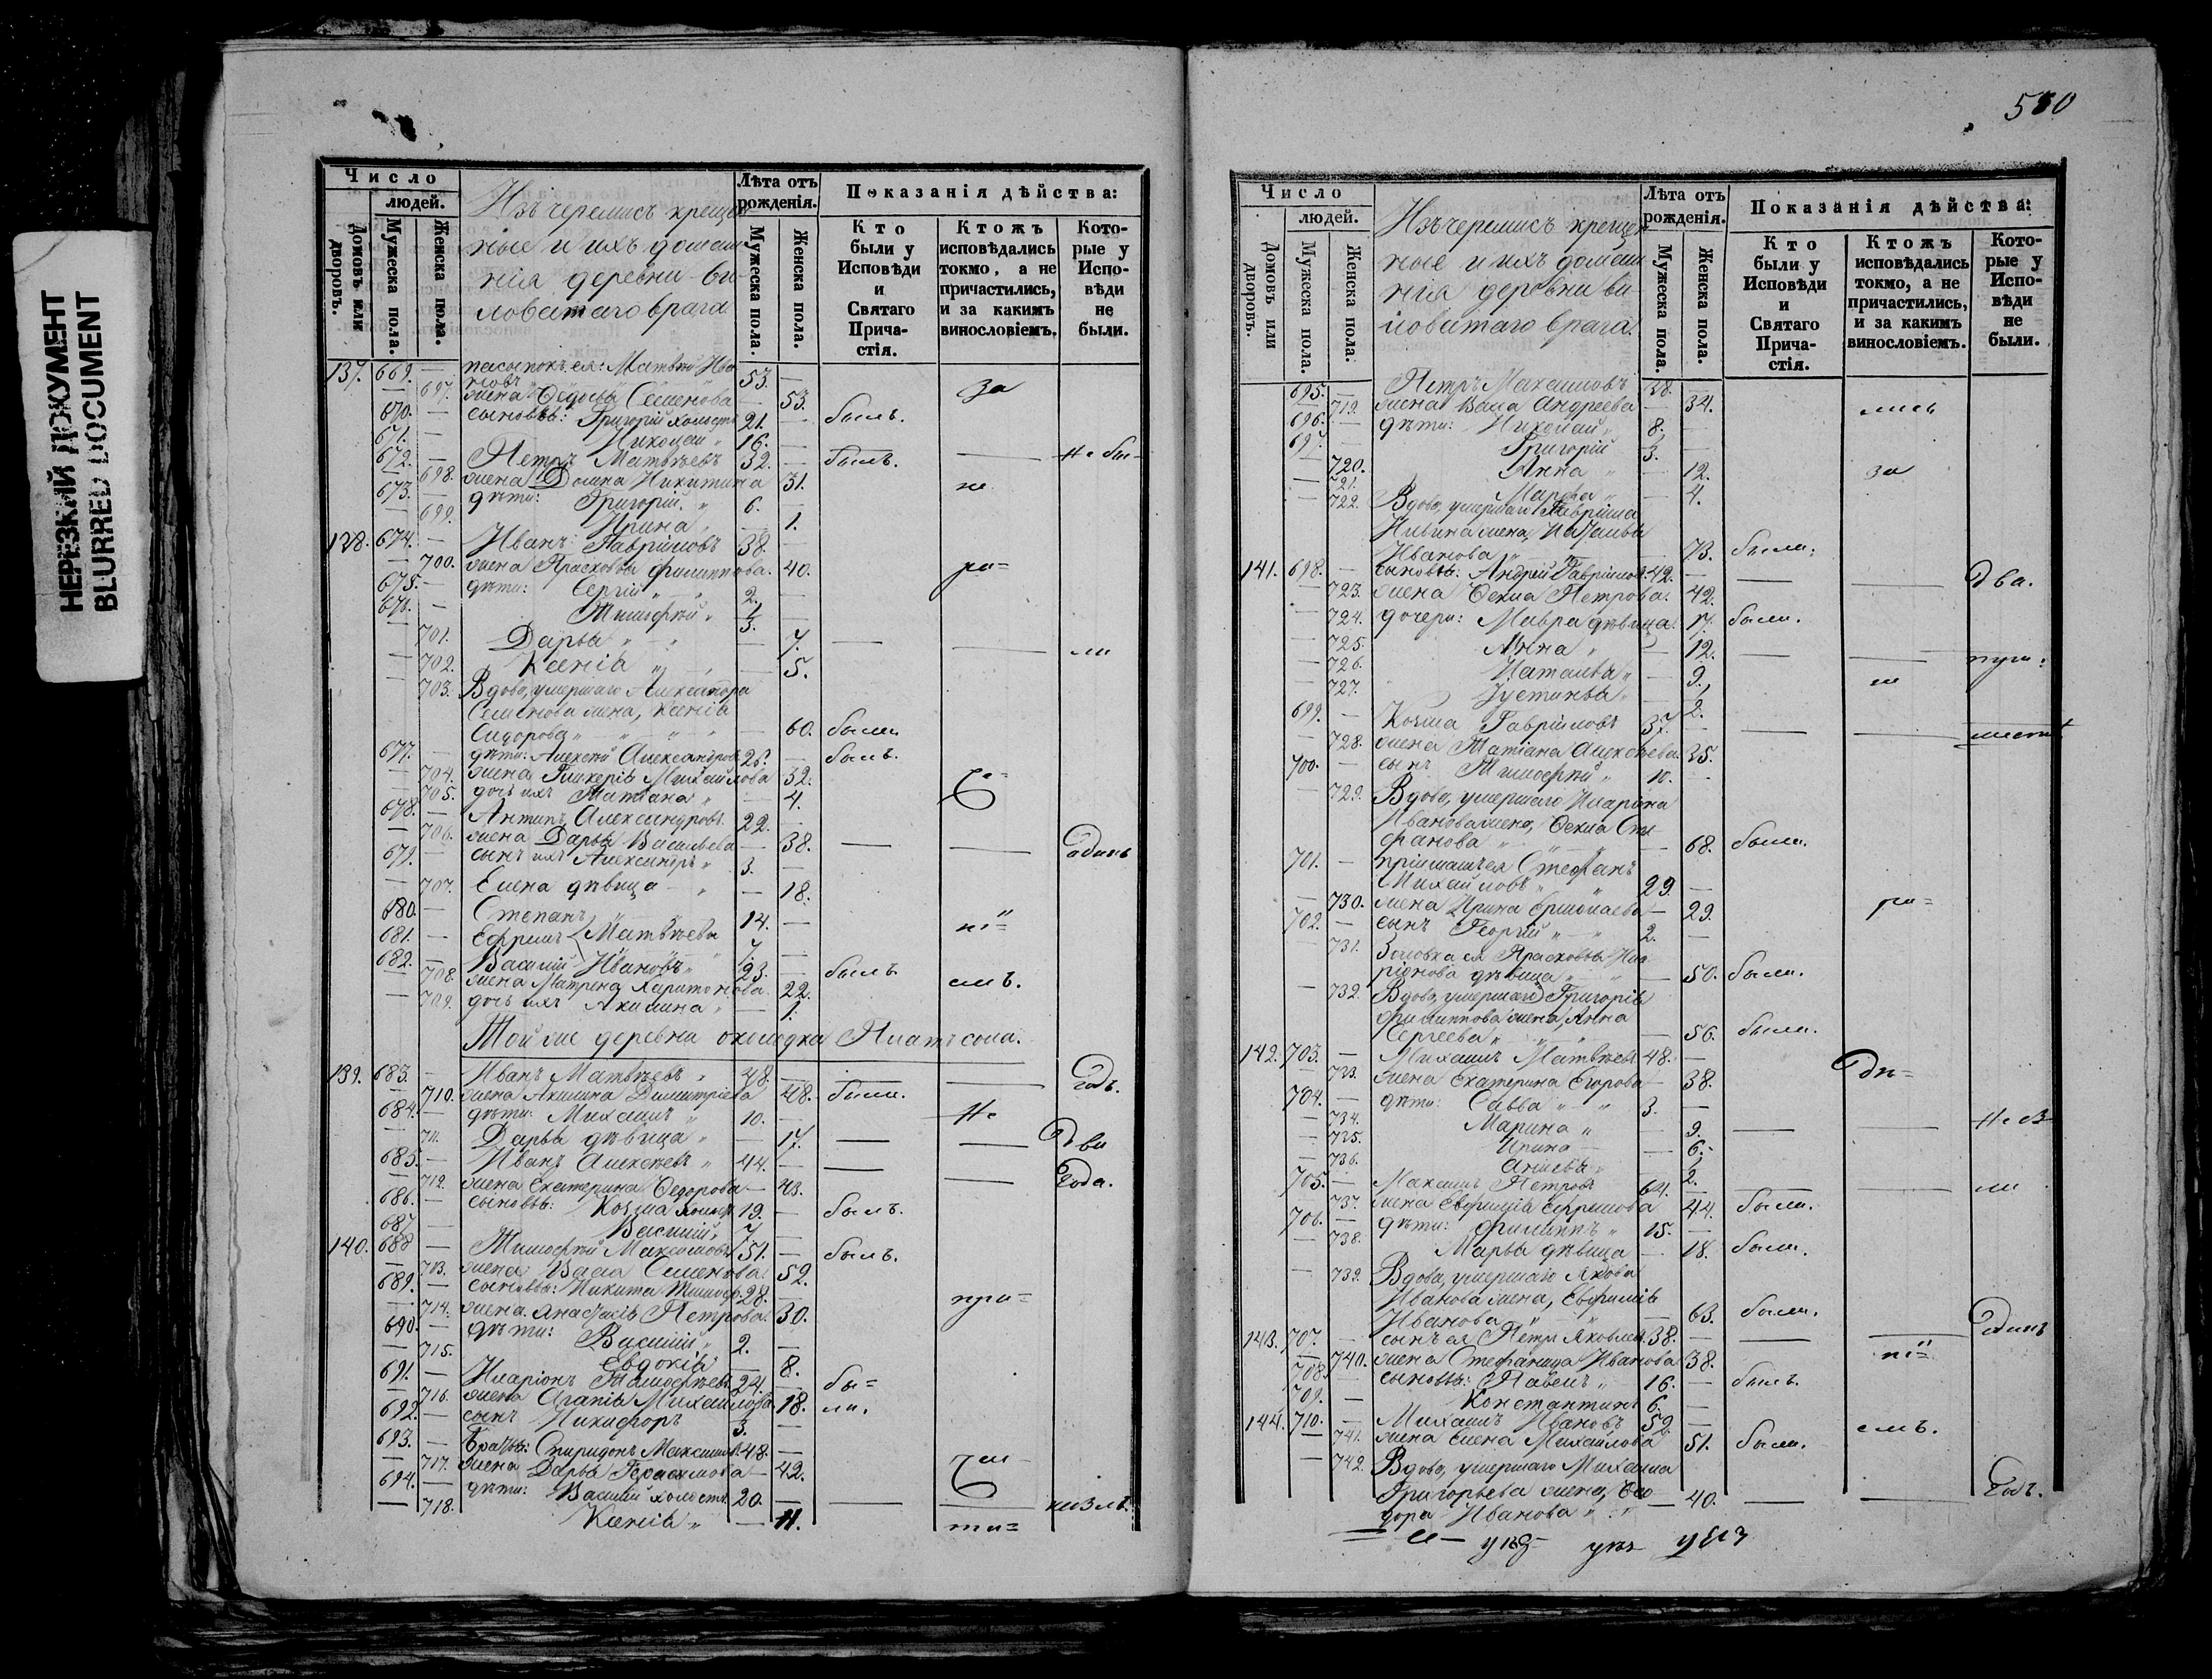 НЕРЕЗКИЙ ДОКУМЕНТ
BLURRED DOCUMENT
Число
людей.
Домовъ или дворовъ.
Мужеска пола.
Женска пола.
Изъ черемисъ крещен
ные и ихъ домаш
нія деревни Ви
ловатаго врага
Лѣта отъ рожденія.
Мужеска пола.
Женска пола.
Показанія дѣйства:
Кто были у Исповѣди и Святаго Прича-стія.
Ктожъ исповѣдались токмо, а не причастились, и за какимъ винословіемъ.
Кото-рые у Испо-вѣди не были.
137. 669. — пасынокъ ея: Матвѣй Ива
новъ 53. —
— 697. жена Ѳедосья Семенова — 53. за
670. — сыновья: Григорій холостъ 21. — былъ.
671. — Николай „ 16. —
672. — Петръ Матвѣевъ 32. — былъ. — Не бы-
— 698. жена Домна Никитина 31. не
673. — дѣти: Григорій „ 6. —
— 699. Ирина „ — 1.
138. 674. — Иванъ Гавріиловъ 38. —
— 700. жена Прасковья Филиппова. 40. ра=
675. — дѣти: Сергій „ 2. —
676. — Тимофей „
— 701. Дарья „ — 7. —
— 702. Ксенія „ — 5. ли
— 703. Вдова, умершаго Александра
Семенова жена, Ксенія
Сидорова „ — 60. была
677. — дѣти: Алексей Александровъ 26. — былъ.
— 704. жена Гликерія Михайлова 32.
— 705. дочь ихъ Татіана „ — 4.
678. — Антипъ Александровъ 22. —
— 706. жена Дарья Васильева — 38. — — Одинъ
679. — сынъ ихъ Александръ „ 3. —
— 707. Елена дѣвица „ — 18.
680. — Степанъ 14. —
681. — Ефремъ Матвѣевы 7. —
682. — Василій Ивановъ „ 23. — былъ
— 708. жена Матрена Харитонова 22. емъ.
— 709. дочь ихъ Акилина „ — 1.
Той же деревни околодка
139. 683. — Иванъ Матвѣевъ „ 48. — — — Годъ.
— 710. жена Акилина Димитріева 48. были.
684. — дѣти: Михаилъ „ 10. — Не
— 711. Дарья дѣвица „ — 17. — — Два
685. — Иванъ Алексѣевъ „ 44. — — — Года.
— 712. жена Екатерина Ѳедорова — 43.
686. — сыновья: Козма холостъ 19. — былъ.
687 — Василій „ 7 —
140. 688 — Тимофей Максимовъ 51. — былъ.
— 713. жена Васа Семенова 52.
689. — сыновья: Никита Тимоф. 28. — при=
— 714. жена Анастасія Петрова. 30.
690. — дѣти: Василій „ 2. —
— 715. Евдокія — 8.
691. — Иларіонъ Тимофѣевъ 24. — бы=
— 716. жена Агапія Михайлова 18. ли.
692. — сынъ Никифоръ
693. — Братья: Спиридонъ Максимовъ 48. —
— 717. жена Дарья Герасимова — 42.
694. — дѣти: Василій холостъ 20. — —
— 718. Ксенія „ — 11.
580
Число
людей.
Домовъ или дворовъ.
Мужеска пола.
Женска пола.
Изъ черемисъ крещен
ные и ихъ домаш
нія деревни Ви
ловатаго врага.
Лѣта отъ рожденія.
Мужеска пола.
Женска пола.
Показанія дѣйства:
Кто были у Исповѣди и Святаго Прича-стія.
Ктожъ исповѣдались токмо, а не причастились, и за какимъ винословіемъ.
Кото-рые у Испо-вѣди не были.
695. — Петръ Максимовъ 38. —
— 719. жена Васа Андреева — 34. лись
696. — дѣти: Николай „ 8. —
697. — Григорій 3. —
— 720. Анна „ — 12. за
— 721. Марѳа „ — 4.
— 722. Вдова, умершаго Гавріила
жена, Наталья
Иванова „ — 73. были.
141. 698. — сыновья: Андрей Гавріиловъ 42. — — — Два.
— 723. жена Ѳекла Петрова. 42.
— 724. дочери: Мавра дѣвица. 17. были.
— 725. Анна „ — 12.
— 726. Наталья „ — 9.
— 727. Устинья „ — 2.
699. — Козма Гавріиловъ 37. — — —
— 728. жена Татіана Алексѣева. 35.
700. — сынъ Тимофей „ 10. —
— 729. Вдова, умершаго Иларіона
Иванова жена, Ѳекла Сте
фанова — 68. были.
701. — Стефанъ
Михайловъ „ 29. —
— 730. жена Ирина Ермолаева — 29. ра=
702. — сынъ Георгій „ 2. —
— 731. Золовка ея Прасковья Ила
ріонова дѣвица — 50. были.
— 732. Вдова, умершаго Григорія
Филиппова жена, Анна
Сергеева „ — 56. были.
142. 703. — Михаилъ Матвѣевъ 48. —
— 733. жена Екатерина Егорова — 38.
704. — дѣти: Савва „ 3. —
— 734. Марина „ — 9.
— 735. Ирина — 6.
— 736. Анисья — 2.
705. — Максимъ Петровъ 64. — — — ли
— 737. жена Евфимія Ефремова 44. были.
706. — дѣти: Филиппъ „ 15. —
— 738. Марья дѣвица — 18. были.
— 739. Вдова, умершаго Якова
Иванова жена, Евфимія
Иванова — 63. были.
143. 707. — сынъ ея Петръ Яковлевъ 38. — — — Одинъ
— 740. жена Стефанида Иванова 38.
708. — сыновья: Павелъ „ 16. — былъ.
709. — Константинъ 6. —
144. 710. — Михаилъ Ивановъ 52. — емъ.
— 741. жена Елена Михайлова 51. были.
— 742. Вдова, умершаго Михаила
Григорьева жена, Ѳео
дора Иванова „ — 40. — — Годъ.